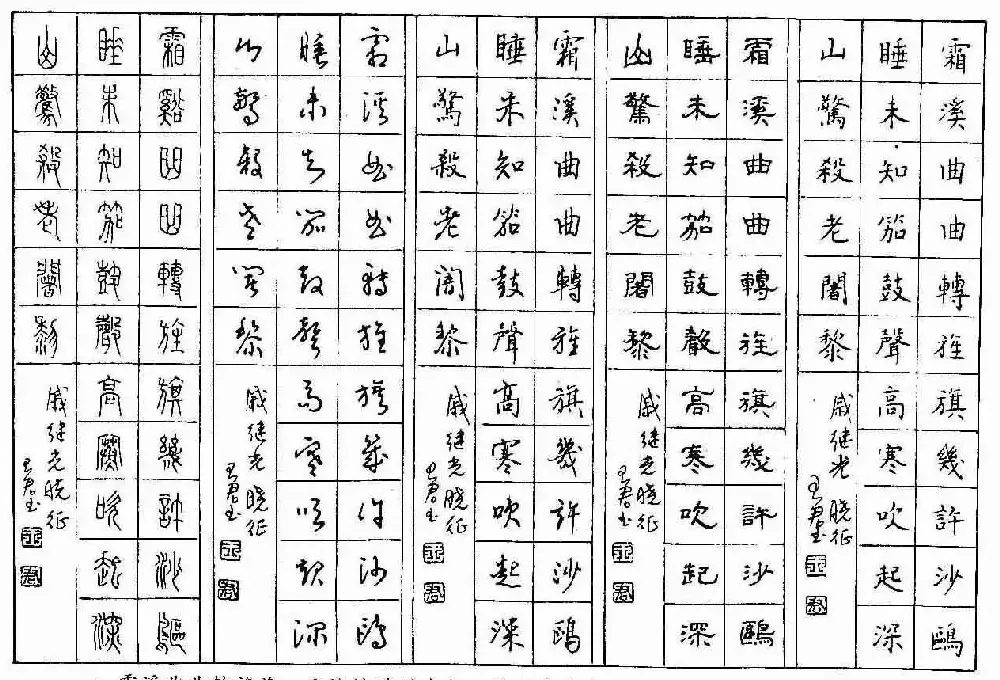 霜溪曲曲轉旌旗幾許沙鷗
睡未知笳鼓聲高寒吹起深
山驚殺老闍黎
戚继光晓征
王君书
霜溪曲曲轉旌旗幾許沙鷗
睡未知笳鼓聲高寒吹起深
山驚殺老闍黎
戚继光晓征
王君书
霜溪曲曲轉旌旗幾許沙鷗
睡未知笳鼓聲高寒吹起深
山驚殺老闍黎
戚继光晓征
王君书
霜溪曲曲轉旌旗幾許沙鷗
睡未知笳鼓聲高寒吹起深
山驚殺老闍黎
戚继光晓征
王君书
霜谿曲曲轉旌旗幾許沙鷗
睡未知笳鼓聲高寒吹起深
山驚殺老闍黎
戚继光晓征
王君书